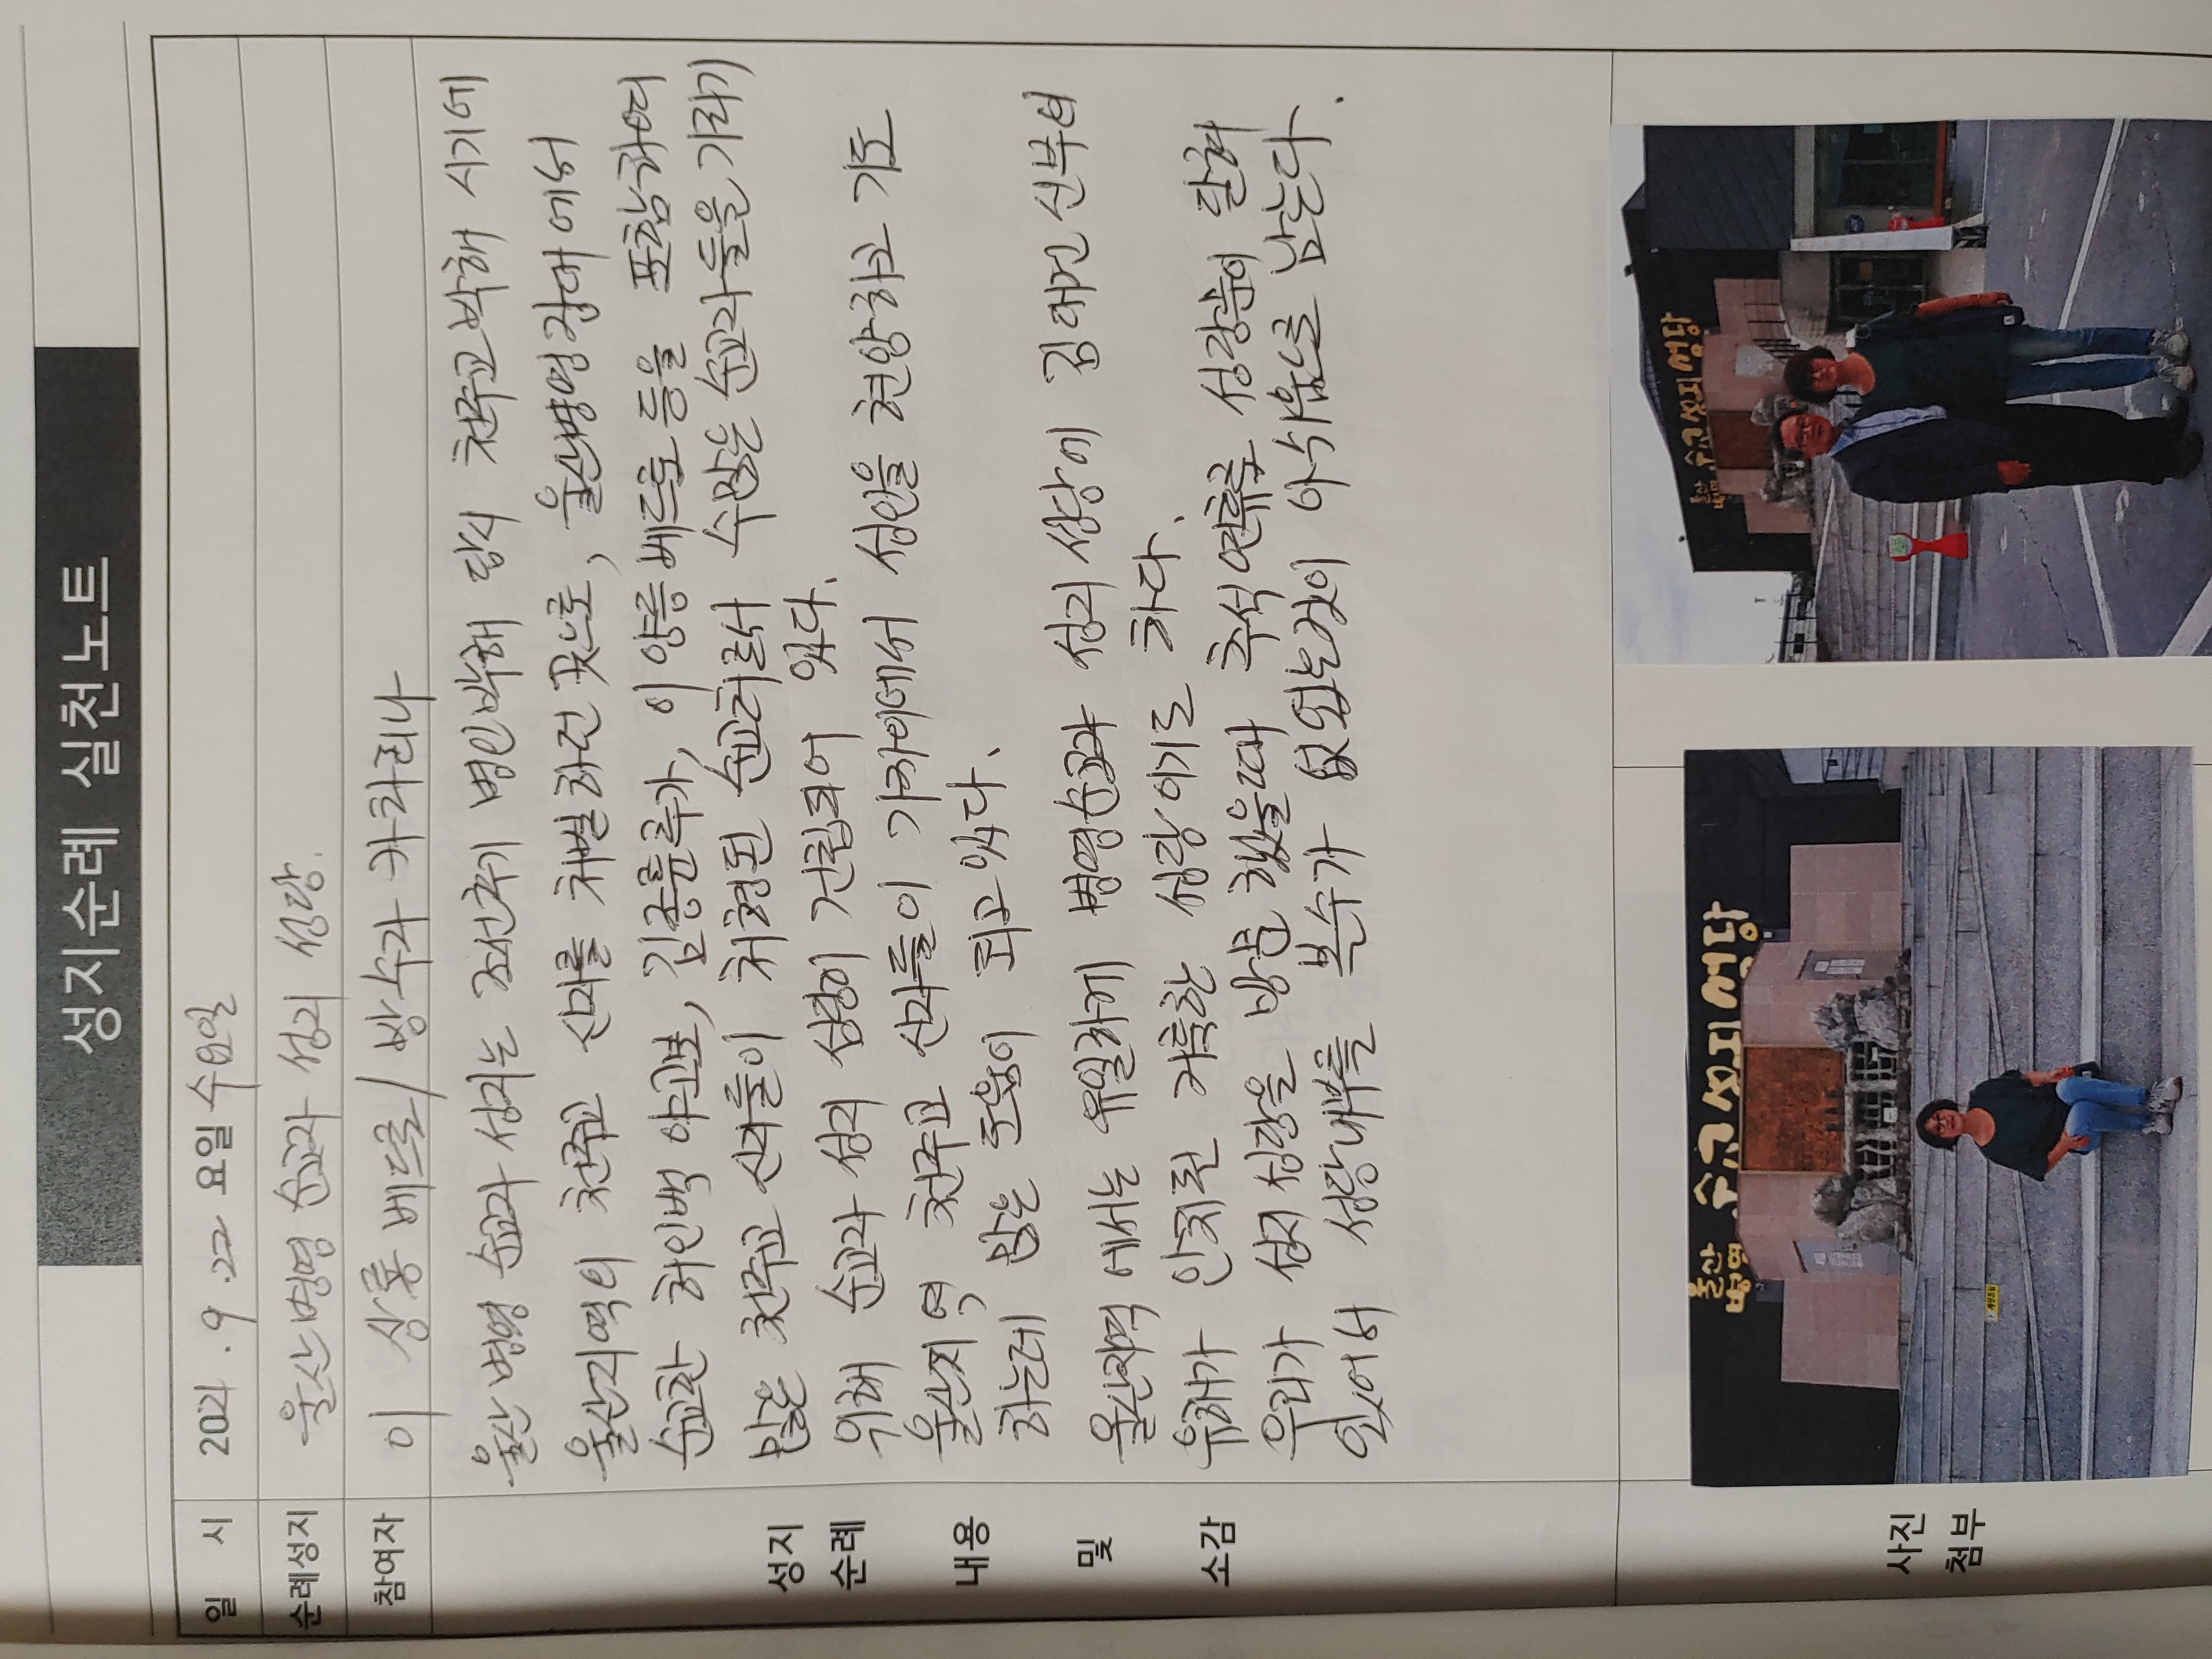 성지순례 실천노트
일 시 2021 . 9 .22 요일 수요일
순례성지 울산병영 순교자 성지 성당.
참여자 이 상룡 베드로/ 방수자 카타리나
울산 병영 순교자 성지는 조선후기 병인박해 당시 천주교박해 시기에
울산지역의 천주교 신자를 처벌하던 곳으로, 울산병영장대에서
순교한 허인백 야고보, 김종륜루가, 이양등베드로 등을 포함하여
많은 천주교 신자들이 처형된 순교터로서 수많은 순교자들을 기리기
위해 순교자 성지 성당이 건립되어 있다.
울산지역 천주교 신자들이 가까이에서 성인을 현양하고 기도
하는데 많은 도움이 되고있다.
울산지역 에서는 유일하게 병영순교자 성지성당에 김대건 신부의
유해가 안치된 거룩한 성당이기도 하다.
우리가 성지성당을 방문 했을때 추석연휴로 성당문이 닫혀
있어서 성당내부를 볼수가 없었는것이 아쉬움으로 남는다.
성지
순례
내용
및
소감
사진
첨부
울산
병영 순교성지성당
울산
병영 순교성지성당